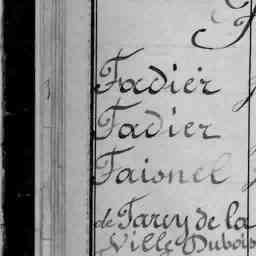 F
Fadier
Fadier
Faisnel
de Farcy de la
Ville Dubois